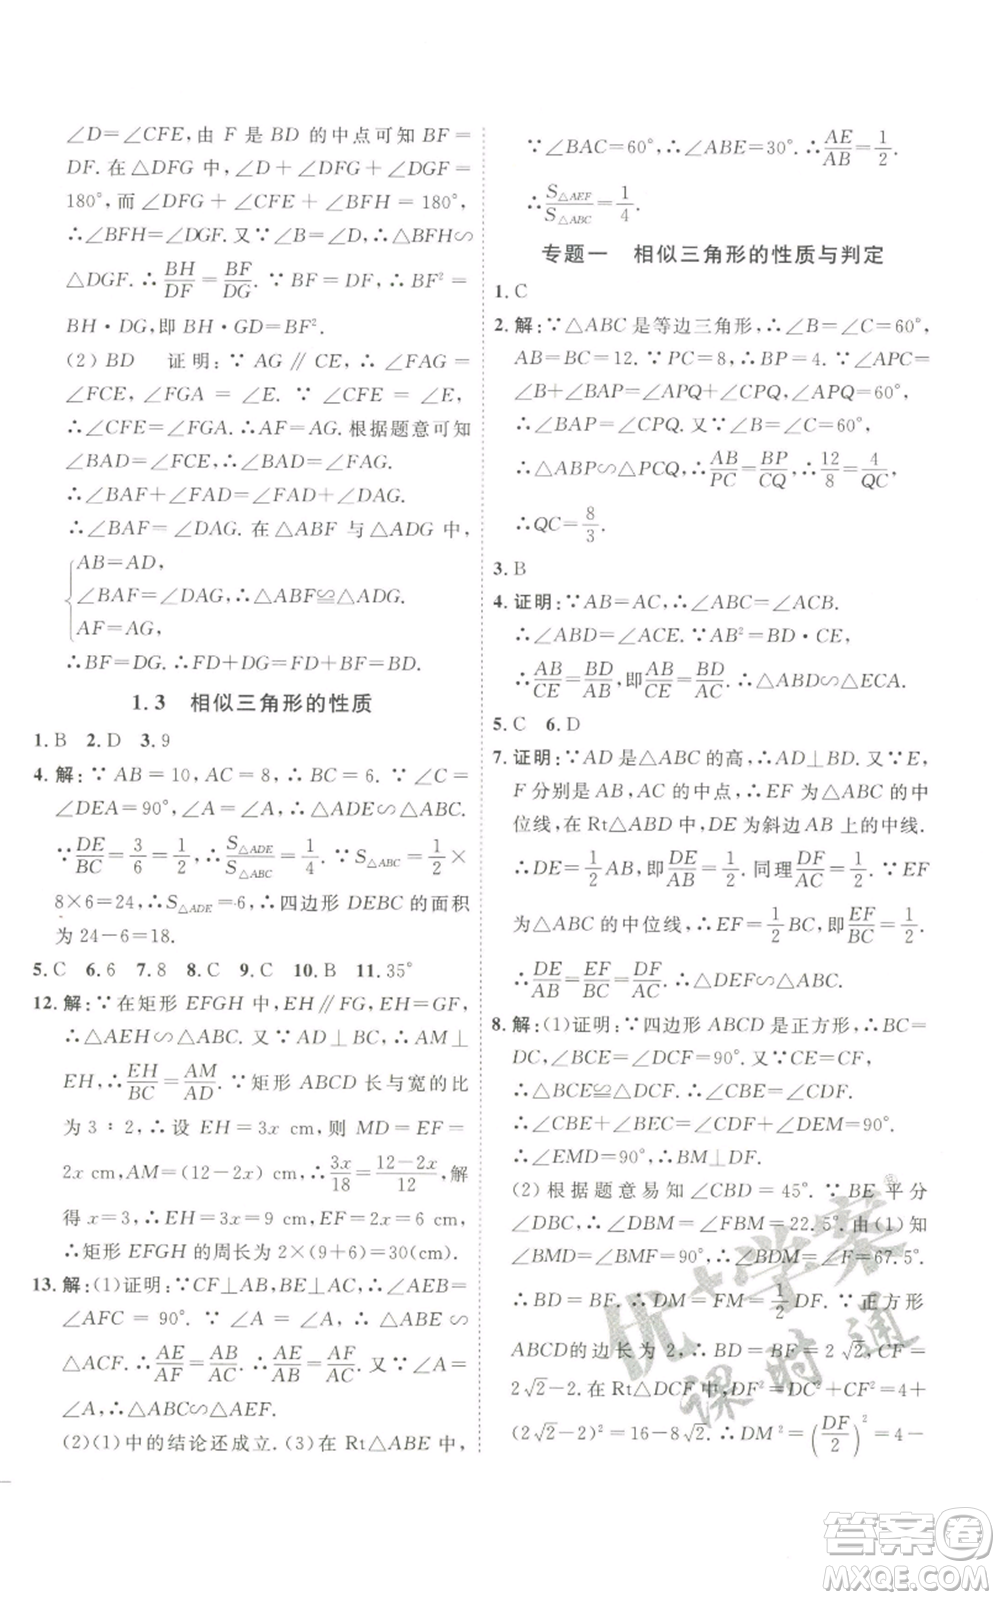 ∠D=∠CFE,由 F 是 BD 的中点可知 BF=
DF. 在 △DFG 中, ∠D+∠DFG+∠DGF=
180°,而 ∠DFG+∠CFE+∠BFH=180°,
∴∠BFH=∠DGF. 又∵∠B=∠D,∴△BFH∽
△DGF. ∴BH/DF=BF/DG. ∵BF=DF,∴BF²=
BH·DG,即 BH·GD=BF².
(2) BD 证明:∵AG∥CE,∴∠FAG=
∠FCE,∠FGA=∠E. ∵∠CFE=∠E,
∴∠CFE=∠FGA.∴AF=AG.根据题意可知
∠BAD=∠FCE,∴∠BAD=∠FAG.
∴∠BAF+∠FAD=∠FAD+∠DAG.
∴∠BAF=∠DAG. 在 △ABF 与△ADG 中,
AB=AD,
∠BAF=∠DAG,∴△ABF≌△ADG.
AF=AG,
∴BF=DG.∴FD+DG=FD+BF=BD.
1.3 相似三角形的性质
1.B 2.D 3.9
4.解:∵AB=10,AC=8,∴BC=6.∵∠C=
∠DEA=90°,∠A=∠A,∴△ADE∽△ABC.
∵DE/BC=3/6=1/2,∴S△ADE/S△ABC=1/4.∵S△ABC=1/2×
8×6=24,∴S△ADE=6,∴四边形 DEBC 的面积
为 24-6=18.
5.C 6.6 7.8 8.C 9.C 10.B 11.35°
12.解:∵在矩形 EFGH 中,EH∥FG,EH=GF,
∴△AEH∽△ABC. 又∵AD⊥BC,∴AM⊥
EH,∴EH/BC=AM/AD.∵矩形 ABCD 长与宽的比
为 3∶2,∴设 EH=3x cm,则 MD=EF=
2x cm,AM=(12-2x)cm,∴3x/18=(12-2x)/12,解
得 x=3,∴EH=3x=9(cm),EF=2x=6(cm).
∴矩形 EFGH 的周长为 2×(9+6)=30(cm).
13.解:(1)证明:∵CF⊥AB,BE⊥AC,∴∠AEB=
∠AFC=90°.∵∠A=∠A,∴△ABE∽
△ACF. ∴AE/AF=AB/AC.∴AE/AB=AF/AC.又∵∠A=
∠A,∴△AEF∽△ABC.
(2)(1)中的结论还成立.(3)在 Rt△ABE 中,
∵∠BAC=60°,∴∠ABE=30°.∴AE/AB=1/2.
∴S△AEF/S△ABC=1/4.
专题一 相似三角形的性质与判定
1.C
2.解:∵△ABC是等边三角形,∴∠B=∠C=60°,
AB=BC=12.∵PC=8,∴BP=4.又∵∠APC=
∠B+∠BAP=∠APQ+∠CPQ,∠APQ=60°,
∴∠BAP=∠CPQ. 又∵∠B=∠C=60°,
∴△ABP∽△PCQ,∴AB/PC=BP/CQ,∴12/8=4/QC,
∴QC=8/3.
3.B
4.证明:∵AB=AC,∴∠ABC=∠ACB.
∴∠ABD=∠ACE.∵AB²=BD·CE,
∴AB/CE=BD/AB,即AB/CE=BD/AC,∴△ABD∽△ECA.
5.C 6.D
7.证明:∵AD是△ABC的高,∴AD⊥BD.又∵E,
F 分别是 AB,AC 的中点,∴EF 为△ABC的中
位线,在Rt△ABD中,DE为斜边AB上的中线.
∴DE=1/2AB,即DE/AB=1/2.同理DF/AC=1/2.∵EF
为△ABC 的中位线,∴EF=1/2BC,即EF/BC=1/2.
∴DE/AB=EF/BC=DF/AC.∴△DEF∽△ABC.
8.解:(1)证明:∵四边形 ABCD 是正方形,∴BC=
DC, ∠BCE=∠DCF=90°. 又∵CE=CF,
∴△BCE≌△DCF. ∴∠CBE=∠CDF.
∴∠CBE+∠BEC=∠CDF+∠DEM=90°.
∴∠EMD=90°,∴BM⊥DF.
(2)根据题意易知∠CBD=45°.∵BE 平分
∠DBC,∴∠DBM=∠FBM=22.5°.由(1)知
∠BMD=∠BMF=90°,∴∠BDM=∠F=67.5°.
∴BD=BF,∴DM=FM=1/2DF.∵正方形
ABCD的边长为 2,∴BD=BF=2√2,CF=
2√2-2. 在 Rt△DCF 中,DF²=DC²+CF²=4+
(2√2-2)²=16-8√2.∴DM²=(DF/2)²=4-
优+学案
课时通
答案卷
MXQE.COM